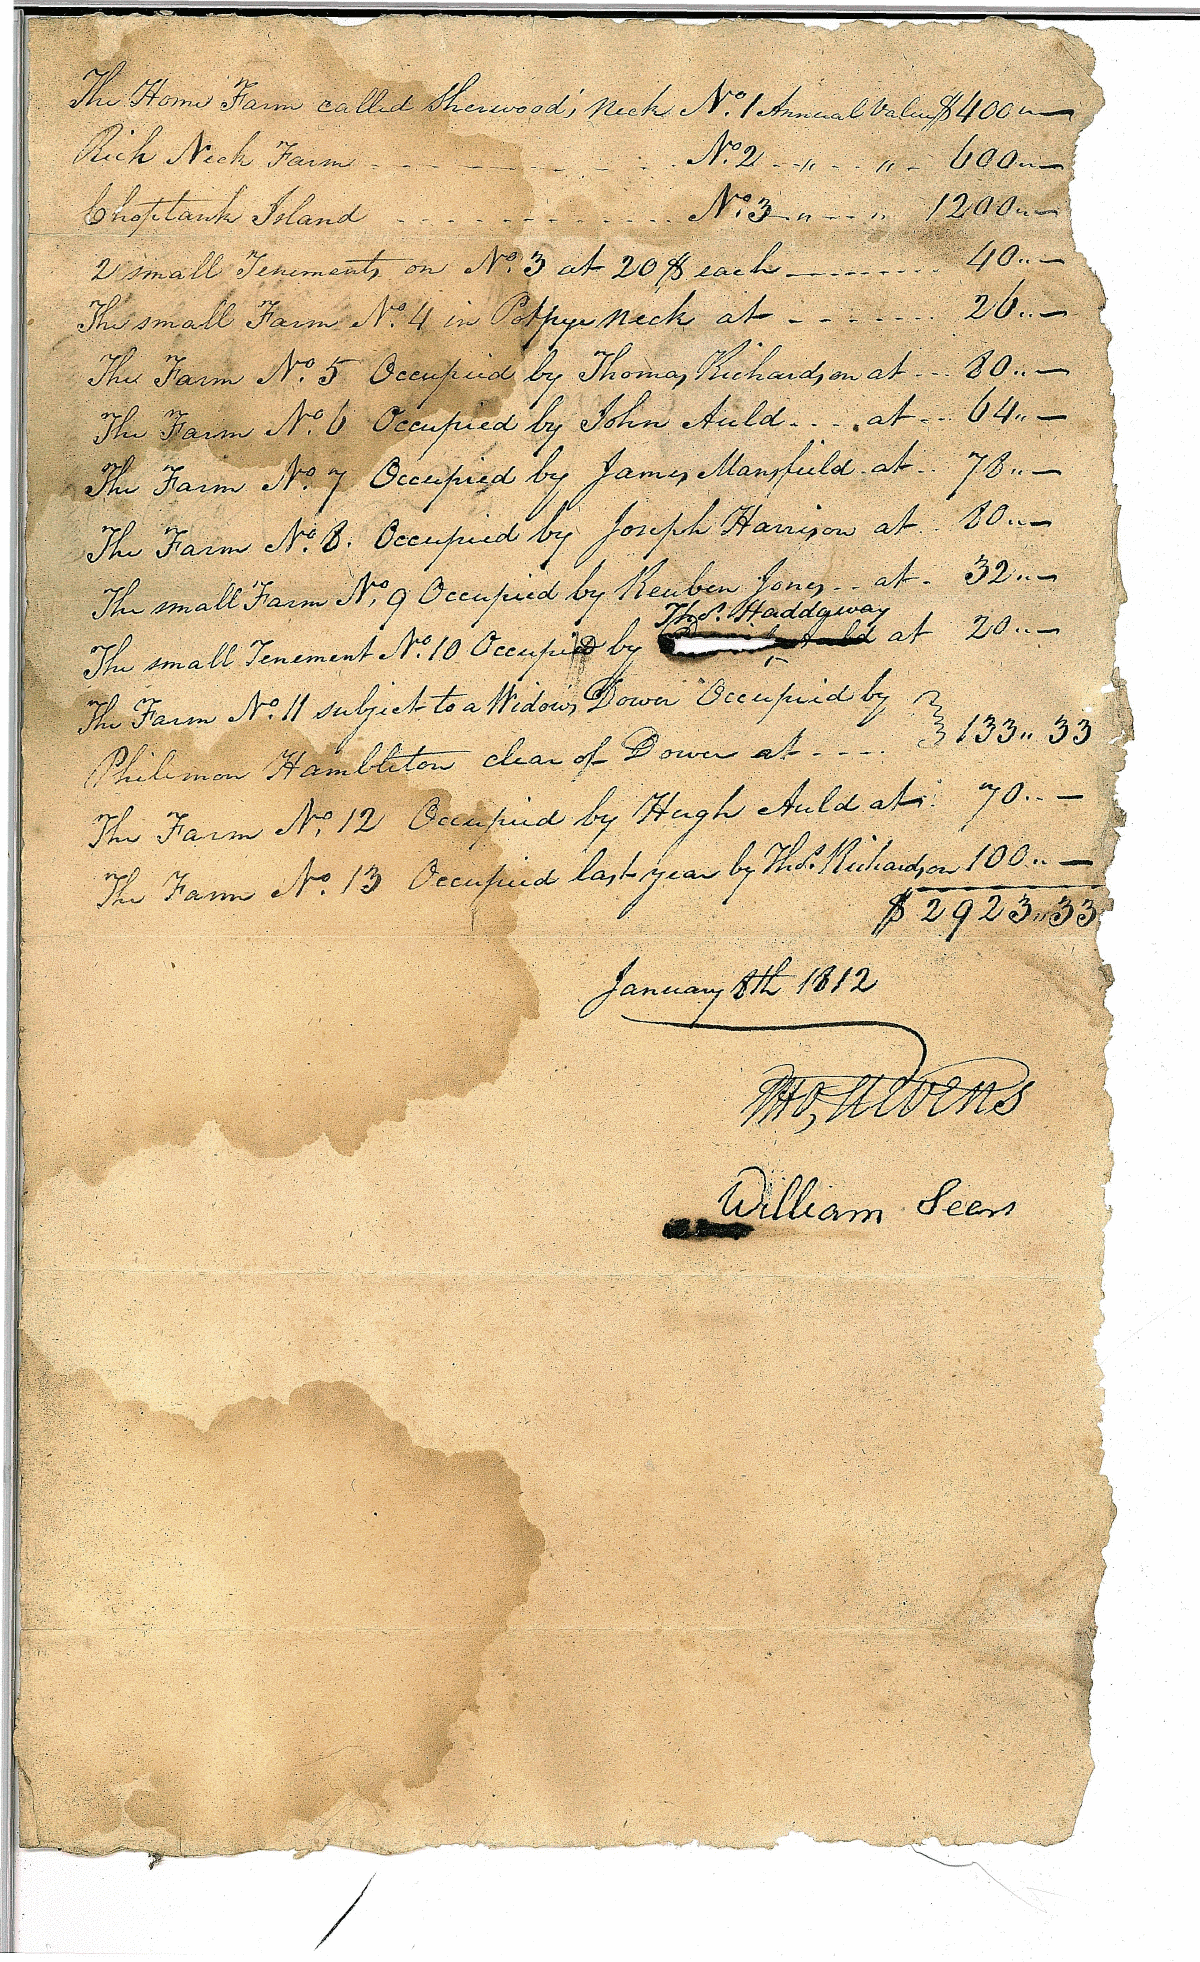 The Home Farm called Sherwood's Neck No. 1 Annual Value $400 „ —
Rich Neck Farm - - - - - - No. 2 - „ - - „ - 600 „ —
Choptank Island - - - - - - No. 3 - „ - - „ 1200 „ —
2 small Tenements on No. 3 at 20 $ each - - - - - - 40 „ —
The small Farm No. 4 in Potpye Neck at - - - - - - 26 „ —
The Farm No. 5 Occupied by Thomas Richardson at - - - 80 „ —
The Farm No. 6 Occupied by John Auld - - - . at - - 64 „ —
The Farm No. 7 Occupied by James Mansfield at - - 78 „ —
The Farm No. 8. Occupied by Joseph Harrison at - - 80 „ —
The small Farm No. 9 Occupied by Reuben Jones - - at - 32 „ —
Thos. Haddaway
The small Tenement No. 10 Occupied by Auld at 20 „ —
The Farm No. 11 subject to a Widows Dower Occupied by
Philemon Hambleton clear of Dower at - - - - } 133 „ 33
The Farm No. 12 Occupied by Hugh Auld at - 70 „ —
The Farm No. 13 Occupied last year by Thos. Richardson 100 „ —
$ 2923 „ 33
January 8th 1812
Tho, Stevens
William Sears